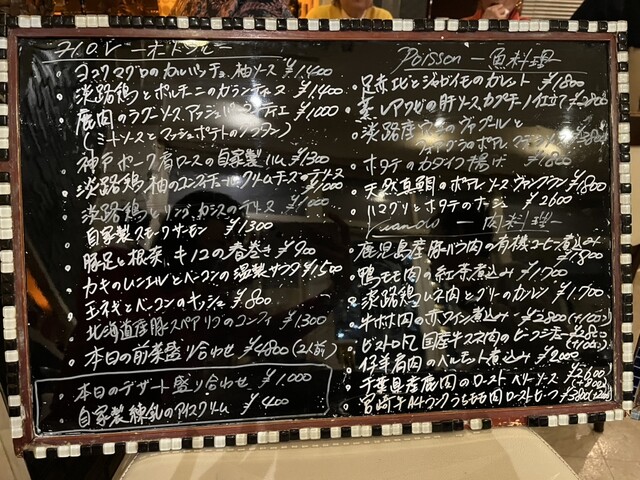 H.O.V ーオードブルー
・ヨコワマグロのカルパッチョ、柚ソース ¥1,400
・淡路鶏とポルチーニのガランティーヌ ¥1,400
・鹿肉のラグーソース、アッシュパルマンティエ ¥1,000
(ミートソースとマッシュポテトのグラタン)
・神戸ポーク肩ロースの自家製ハム ¥1300
・淡路鶏、柚のコンフィチュール、クリームチーズのテリーヌ ¥1,000
・淡路鶏とリンゴ、カシスのテリーヌ ¥1,000
・自家製スモークサーモン ¥1300
・豚足と根菜、キノコの春巻き ¥900
・カキのムニエルとベーコンの温製サラダ ¥1,500
・玉ネギとベーコンのキッシュ ¥800
・北海道産豚スペアリブのコンフィ ¥1,300
・本日の前菜盛り合わせ ¥4800 (2人前)
・本日のデザート盛り合わせ ¥1.000
・自家製練乳のアイスクリーム ¥400
Poisson ー魚料理
・足赤エビとジャガイモのカレット ¥1,800
・蒸しアワビの肝ソース カプチーノ仕立て ¥2800
・淡路産 のヴァプールと
・ホタテのカダイフ揚げ ¥1800
・天然真鯛のポワレ ソースヴァンブラン ¥1,800
・ハマグリとホタテのナージュ ¥2600
ー肉料理ー
・鹿児島産豚バラ肉の有機コーヒー煮込み ¥1800
・鴨モモ肉の紅茶煮込み ¥1,700
・淡路鶏ムネ肉とブリーのカルソン ¥1,700
・牛ホホ肉の赤ワイン煮込み ¥2800 (+1000)
・ビストロ 国産牛スネ肉のビーフシチュー ¥2800 (+1000)
・仔羊肩肉のベルモット煮込み ¥2000
・千葉県産鹿肉のロースト ベリーソース ¥2,600 (+800)
・宮崎牛A4ランクうちモモ肉ローストビーフ ¥3800